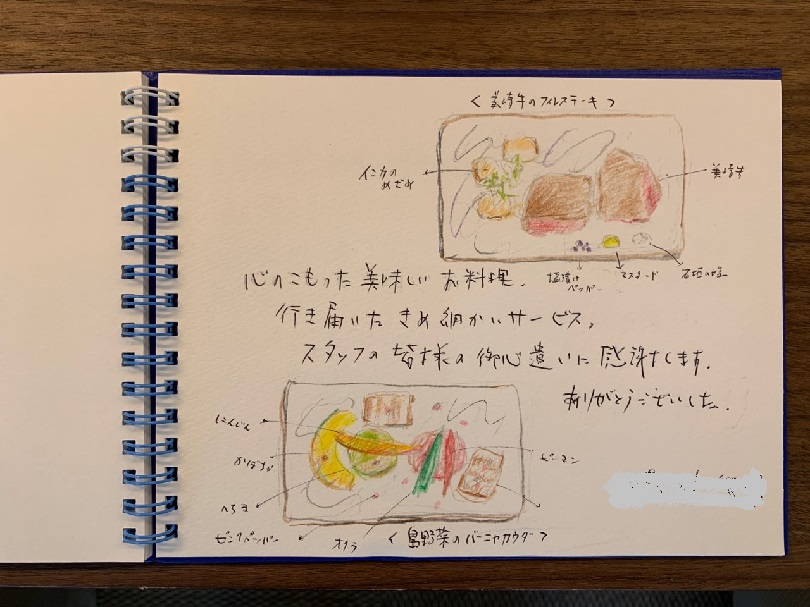 < 美崎牛のフィレステーキ >
インカの
めざめ
美崎牛
塩漬け
ペッパー
マスタード
石垣の塩
心のこもった美味しいお料理、
行き届いたきめ細かいサービス。
スタッフの皆様の御心遣いに感謝します。
ありがとうございました。
にんじん
かぼちゃ
へちま
ピンクペッパー
オクラ
ピーマン
< 島野菜のバーニャカウダ >